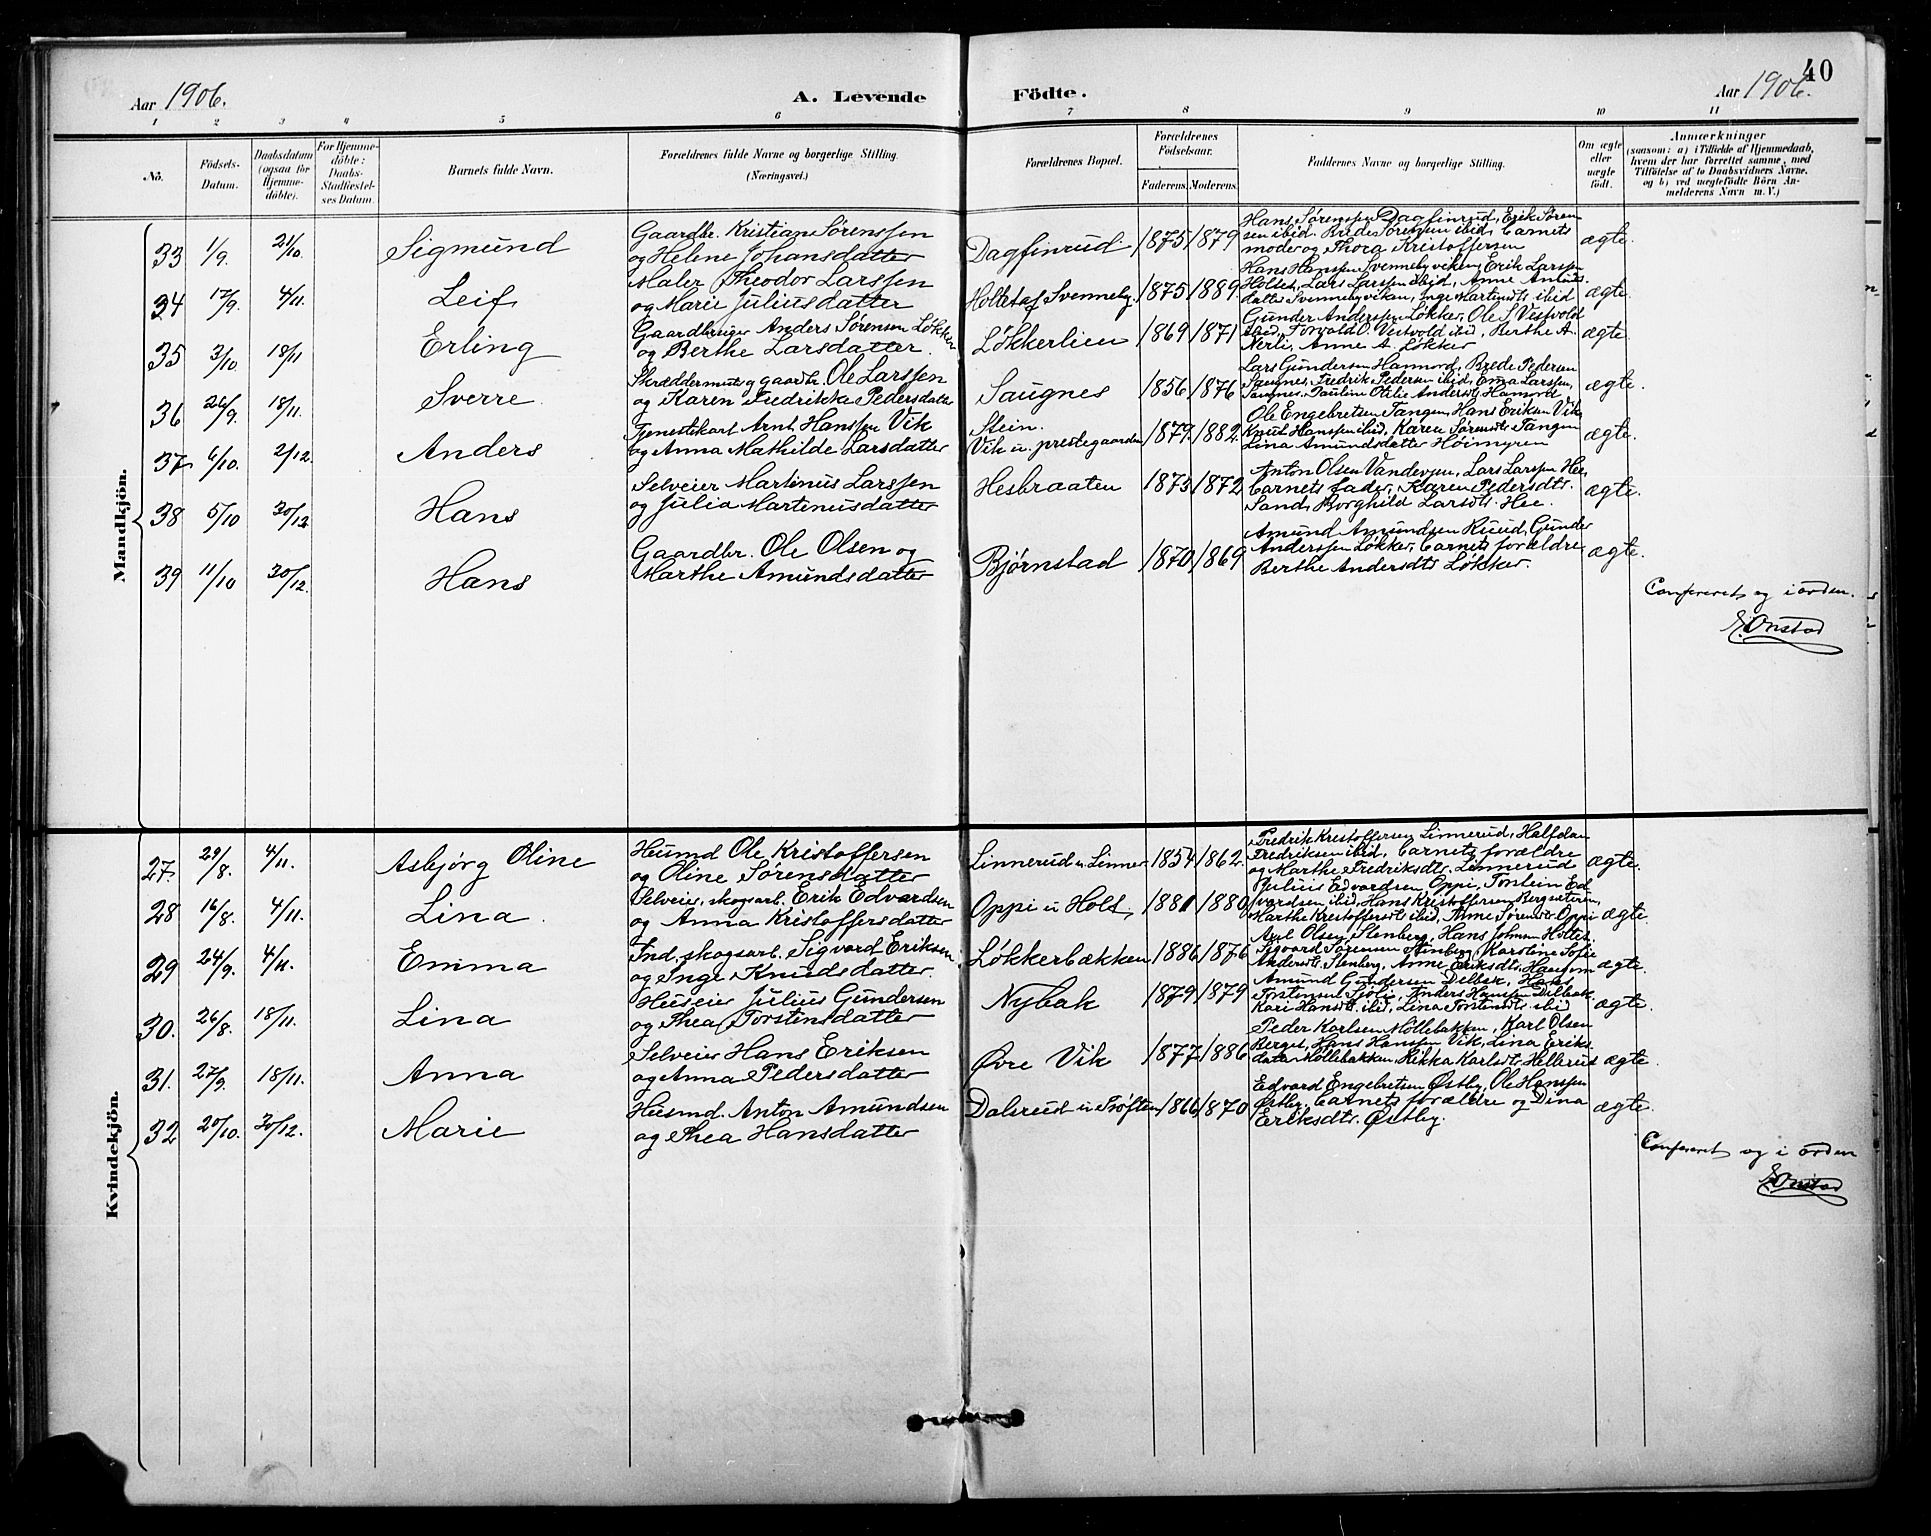 40
Aar 1906.
A. Levende Födte.
Aar 1906.
1 2 3 4 5 6 7 8 9 10 11
No.
Födsels-Datum.
Daabsdatum (ogsaa for Hjemme-döbte).
For Hjemme-döbte: Daabs-Stadfæstel-ses Datum.
Barnets fulde Navn.
Forældrenes fulde Navne og borgerlige Stilling.
(Næringsvei.)
Forældrenes Bopæl.
Forældrenes Födselsaar.
Faderens. Moderens.
Faddernes Navne og borgerlige Stilling.
Om ægte eller uægte födt.
Anmærkninger
(saasom: a) i Tilfælde af Hjemmedaab,
hvem der har forrettet samme, med
Tilföielse af to Daabsvidners Navne.
og b) ved uægtefödte Börn An-
melderens Navn m. V.)
Mandkjön.
33 1/9. 21/10. Sigmund
Gaardbr. Kristian Sørenssen
og Helene Johansdatter
Dagfinrud 1875 1879
Hans Sørenssen Dagfinrud, Erik Søren-
sen ibid. Brede Sørenssen ibid, barnets
moder og Thora Kristoffersen
ægte.
34 17/9. 4/11. Leif
Maler Theodor Larssen
og Marie Juliusdatter
Holtet af Svenneby. 1875 1889
Hans Hanssen Svennebyviken, Erik Larssen
Holtet, Lars Larssen ibid, Anne
datter Svennebyviken, Inge Martinsdt. ibid
ægte.
35 3/10 18/11 Erling
Gaardbruger Anders Sørensen Løkker
og Berthe Larsdatter.
Løkkerlien 1869 1871
Gunder Anderssen Løkker, Ole S. Vestvold
ibid, Torvald O. Vestvold ibid, Berthe A.
Nerli, Anne A. Løkker
ægte.
36 26/9. 18/11. Sverre
Skræddermest. og gaardbr. Ole Larssen
og Karen Fredrikke Pedersdatter
Saugnes 1856 1876
Lars Gundersen Hamnord, Brede Pedersen
Saugnes, Fredrik Pedersen ibid, Ema Larssen,
Saugnes, Pauline Otilie Andersdt. Hamnord
ægte.
37 6/10. 2/12. Anders
Tjenestekarl Arnt Hanssen Vik
og Anna Mathilde Larsdatter
Stein.
Vik u. prestegaarden 1879. 1882.
Ole Engebretsen Tangen, Hans Eriksen Vik
Knut Hanssen ibid, Karen Sørensdt. Tangen
Lina Amundsdatter Høimyren
ægte.
38 5/10 30/12 Hans
Selveier Martinus Larssen
og Julia Martinusdatter
Hesbraaten 1873 1872
Anton Olsen Vandevjen, Lars Larssen Hee,
barnets fader, Karen Pedersdt.
Sand, Borghild Larsdt. Hee.
ægte.
39 11/10 30/12. Hans
Gaardbr. Ole Olsen og
Marthe Amundsdatter
Bjørnstad 1870 1869
Amund Amundsen Ruud, Gunder
Anderssen Løkker, barnets forældre
Berthe Andersdt. Løkker.
ægte.
Confereret og i orden.
E. Onstad
Kvindekjön.
27. 29/8. 4/11. Asbjørg Oline
Husmd Ole Kristoffersen
og Oline Sørensdatter
Linnerud u. Linner 1854 1862.
Fredrik Kristoffersen Linnerud, Halfdan
Fredriksen ibid, barnets forældre
og Marthe Fredriksdt. Linnerud
ægte.
28 16/8. 4/11. Lina
Selveier, skogsarb. Erik Edvardsen
og Anna Kristoffersdatter
Oppi u Holt 1881 1880
Julius Edvardsen Oppi, Torstein Ed-
vardsen ibid, Hans Kristoffersen Bergsæteren,
Marthe Kristoffersdt. ibid, Anne Sørensdt. Oppi
ægte
29 24/9. 4/11. Emma
Ind. skogsarb. Sigvard Eriksen
og Inge Knudsdatter
Løkkerbækken 1886 1876
Axel Olsen Stenberg, Hans Johnsen Holtet
Sigvard Sørensen Stenberg, Karstine Sofie
Andersdt. Stenberg, Anne Eriksdt.
ægte.
30. 26/8. 18/11. Lina
Huseier Julius Gundersen
og Thea Torstensdatter
Nybak 1879 1879
Amund Gundersen Delbæk, Hans
Torstensen Sjølie, Anders Hanssen Delbæk,
Kari Hansdt. ibid, Lina Torstensdt. ibid
ægte.
31. 27/9. 18/11. Anna
Selveier Hans Eriksen
og Anna Pedersdatter
Øvre Vik 1877 1886
Peder Karlsen Møllebakken, Karl Olsen
Berget, Hans Hanssen Vik, Lina Eriks-
datter Møllebakken, Rikka Karlsdt. Hellerud
ægte.
32 20/10. 30/12. Marie
Husmd. Anton Amundsen
og Thea Hansdatter
Dalsrud u. Tøften 1866 1870
Edvard Engebretsen Østby, Ole Hanssen
Østby, barnets forældre og Dina
Eriksdtr. Østby.
ægte.
Confereret og i orden
E. Onstad